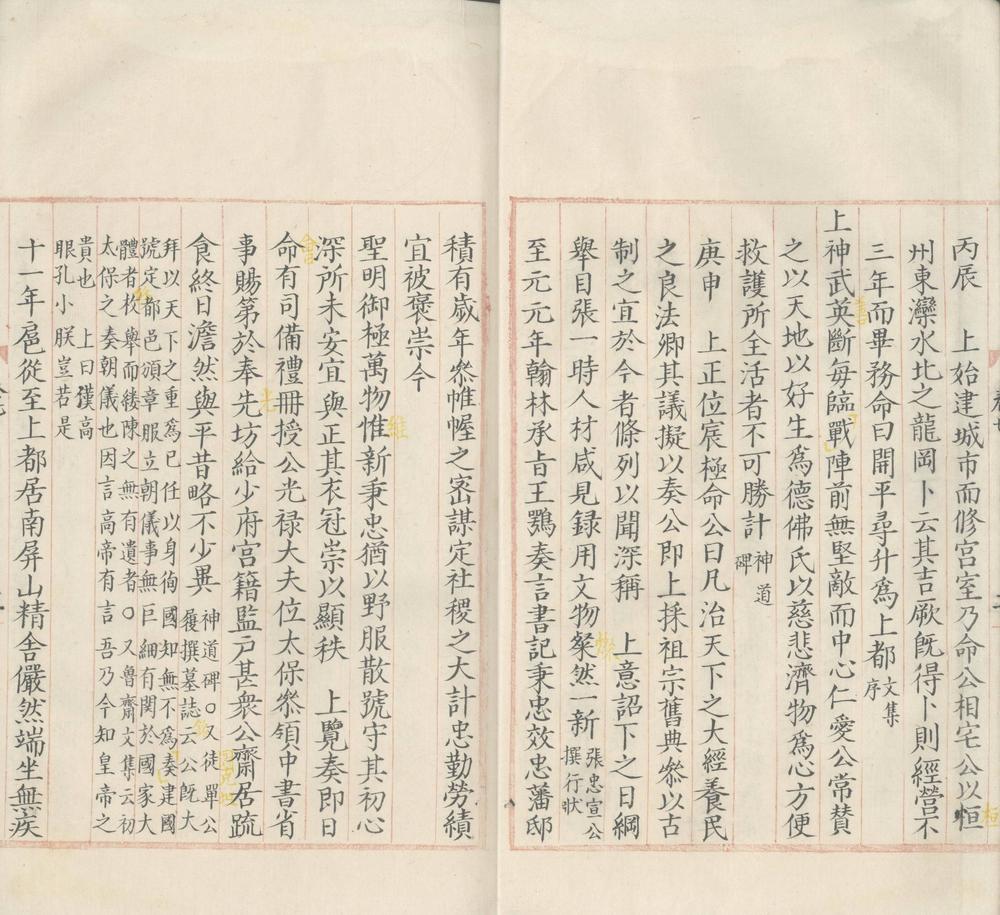 丙辰　上始建城市而修宮室乃命公相宅公以恒
州東灤水北之龍岡卜云其吉厥既得卜則經營不
三年而畢務命曰開平尋升為上都文集序
上神武英斷每臨戰陣前無堅敵而中心仁愛公常贊
之以天地以好生為德佛氏以慈悲濟物為心方便
救護所全活者不可勝計神道碑
庚申　上正位宸極命公曰凡治天下之大經養民
之良法卿其議擬以奏公即上採祖宗舊典叅以古
制之宜於今者條列以聞深稱　上意詔下之日綱
舉目張一時人材咸見録用文物粲然一新張忠宣公撰行狀
至元元年翰林承旨王鶚奏言書記秉忠效忠藩邸
積有歲年叅帷幄之宻謀定社稷之大計忠勤勞績
宜被褒崇今
聖明御極萬物惟新秉忠猶以野服散號守其初心
深所未安宜與正其衣冠崇以顯秩　上覽奏即日
命有司備禮冊授公光禄大夫位太保叅領中書省
事賜第於奉先坊給少府宮籍監戸甚衆公齋居蔬
食終日澹然與平昔略不少異神道碑○又徒單公
履撰墓誌云公既大
拜以天下之重為已任以身徇國知無不為奏建國
號定都邑頒章服立朝儀事無巨細有関於國家大
體者枚舉而縷陳之無有遺者○又魯齋文集云初
太保之奏朝儀也因言高帝有言吾乃今知皇帝之
貴也　上曰漢高
眼孔小朕豈若是
十一年扈從至上都居南屏山精舍儼然端坐無疾